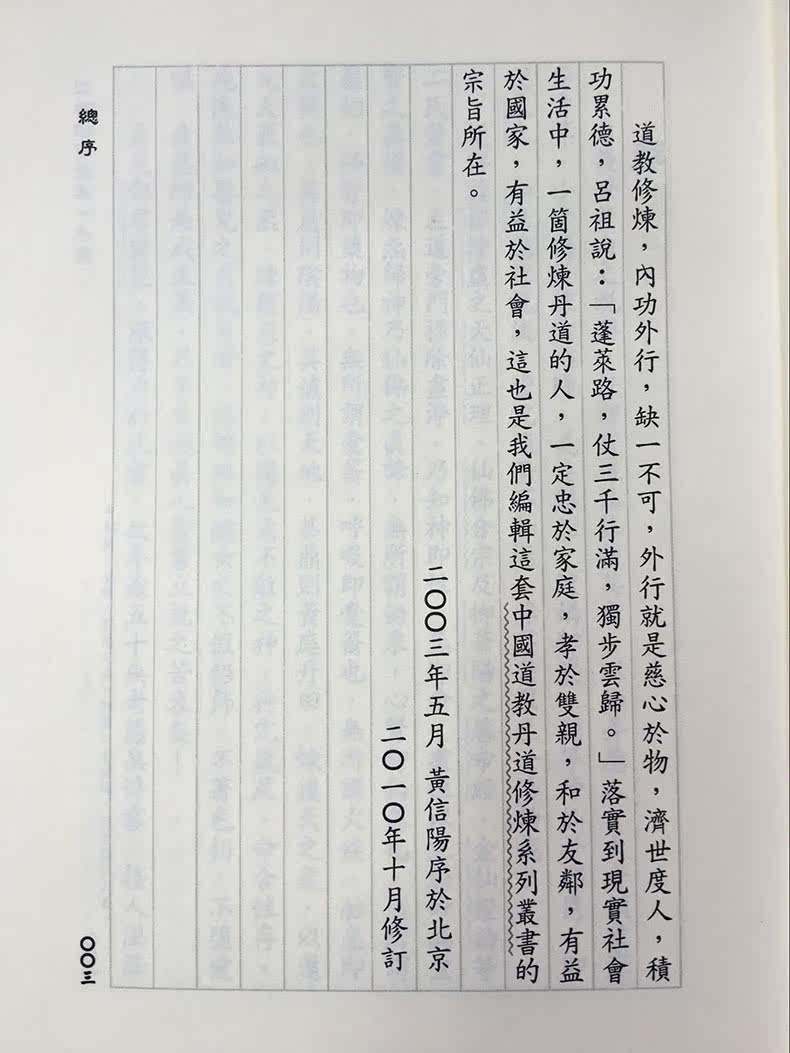 道教修煉，內功外行，缺一不可，外行就是慈心於物，濟世度人，積
功累德，呂祖說：「蓬萊路，仗三千行滿，獨步雲歸。」落實到現實社會
生活中，一箇修煉丹道的人，一定忠於家庭，孝於雙親，和於友鄰，有益
於國家，有益於社會，這也是我們編輯這套中國道教丹道修煉系列叢書的
宗旨所在。
二〇〇三年五月 黃信陽序於北京
二〇一〇年十月修訂
總序
〇〇三